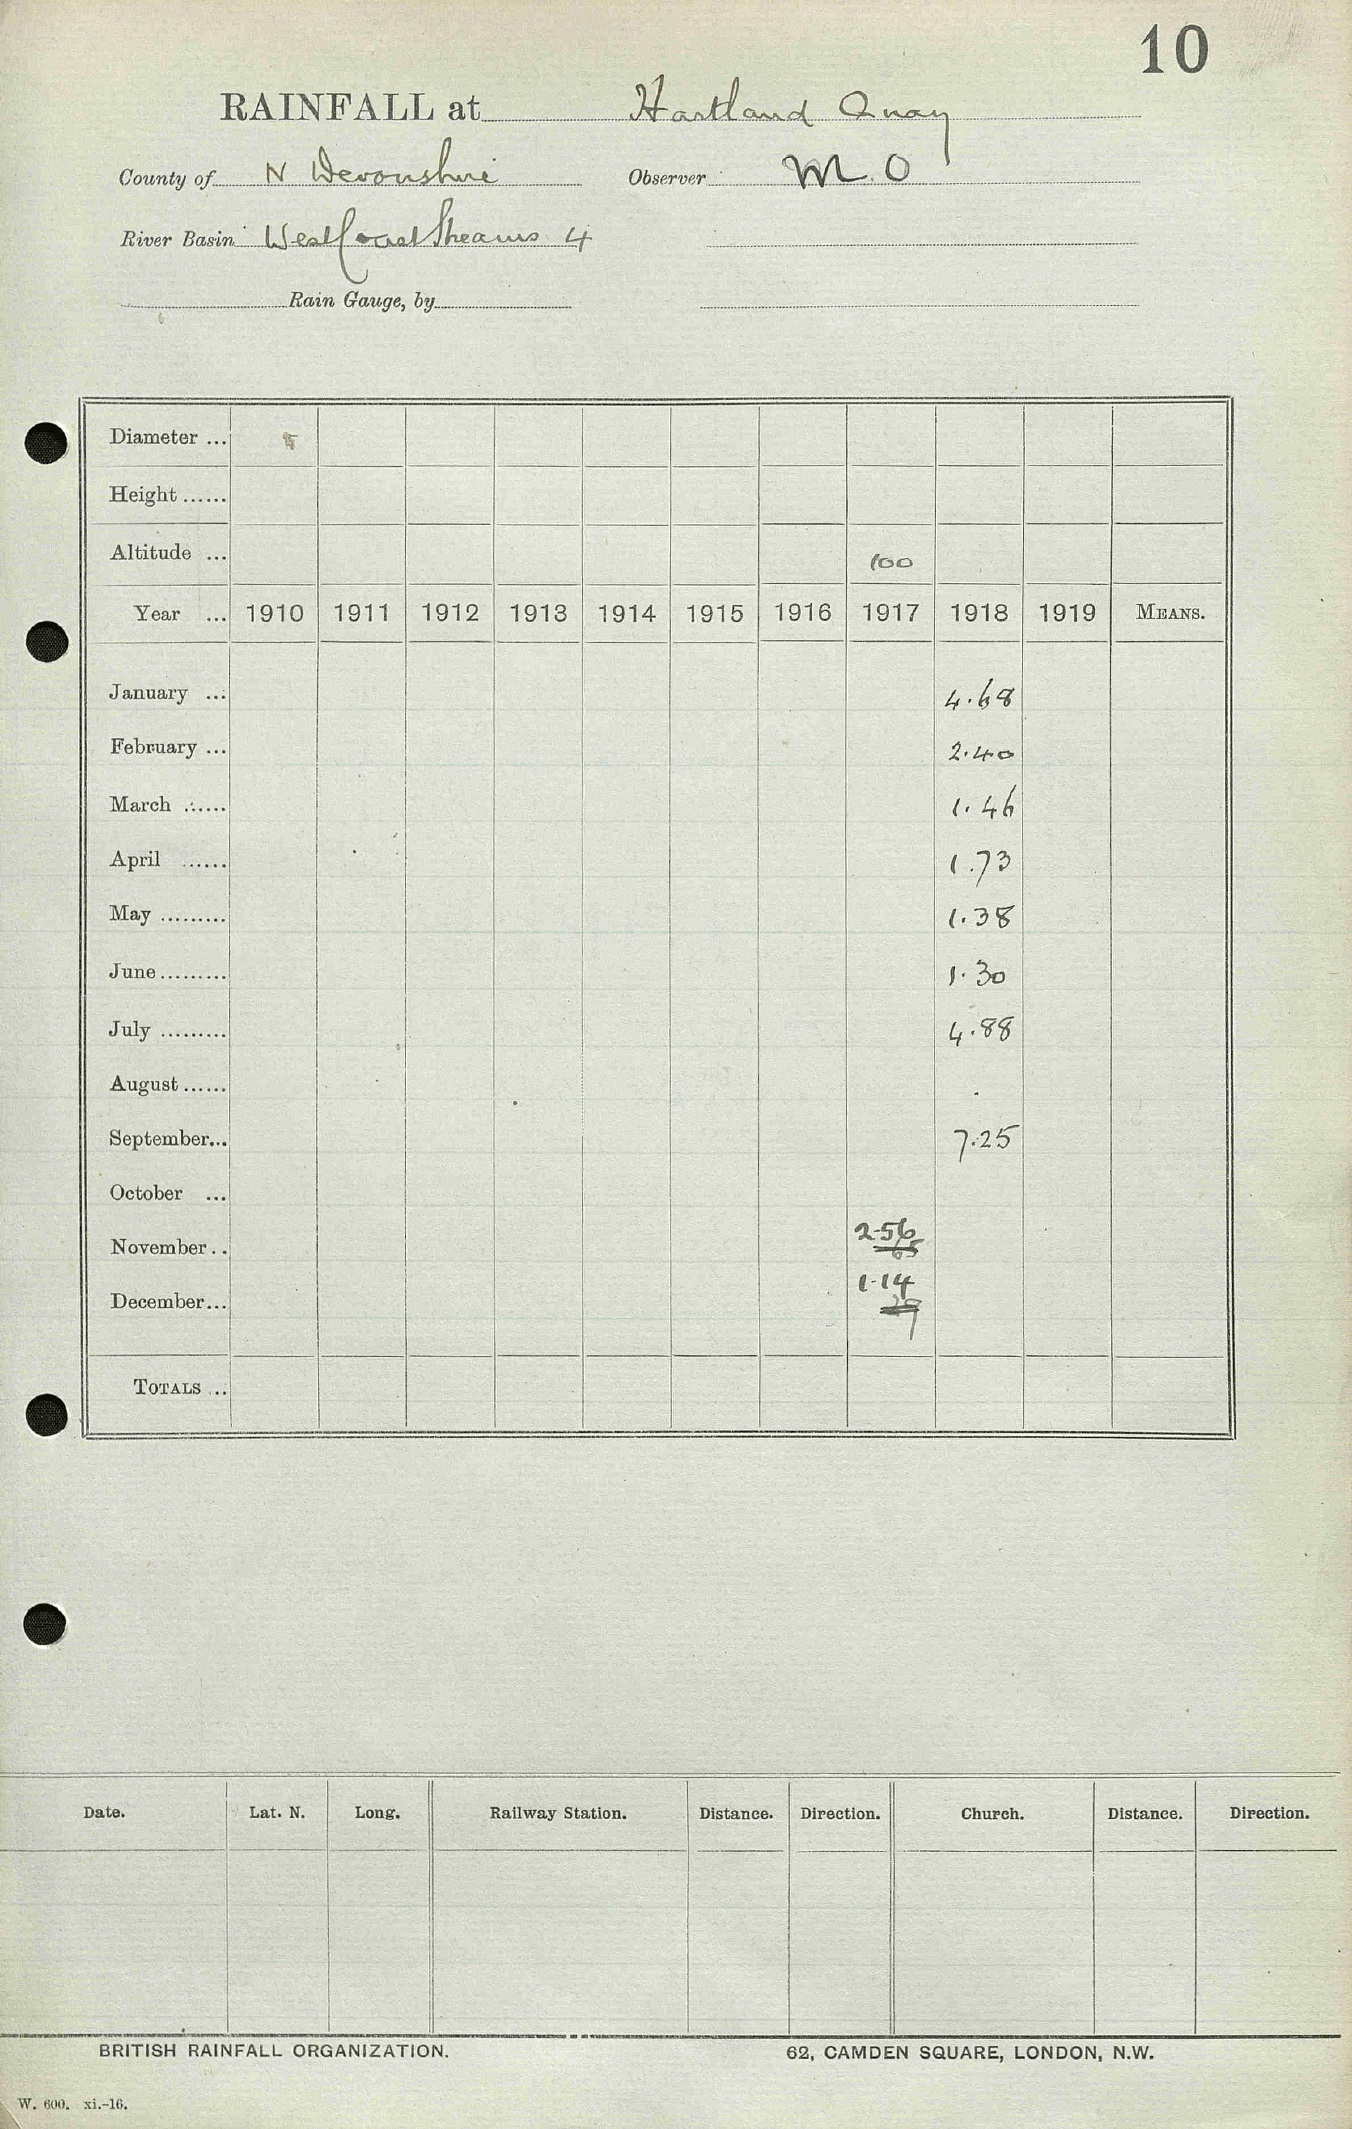 10
RAINFALL at Hartland Quay
County of N Devonshire Observer M.O
River Basin West Coast Streams 4
Rain Gauge, by
Diameter ...
Height ......
Altitude ... 100
Year ... 1910 1911 1912 1913 1914 1915 1916 1917 1918 1919 MEANS.
January ... 4.68
February ... 2.40
March ...... 1.46
April ...... 1.73
May ......... 1.38
June ......... 1.30
July ......... 4.88
August ...... .
September... 7.25
October ...
November.. 2.56
65
December... 1.14
29
TOTALS ...
Date. Lat. N. Long. Railway Station. Distance. Direction. Church. Distance. Direction.
BRITISH RAINFALL ORGANIZATION. 62, CAMDEN SQUARE, LONDON, N.W.
W. 600. xi.-16.